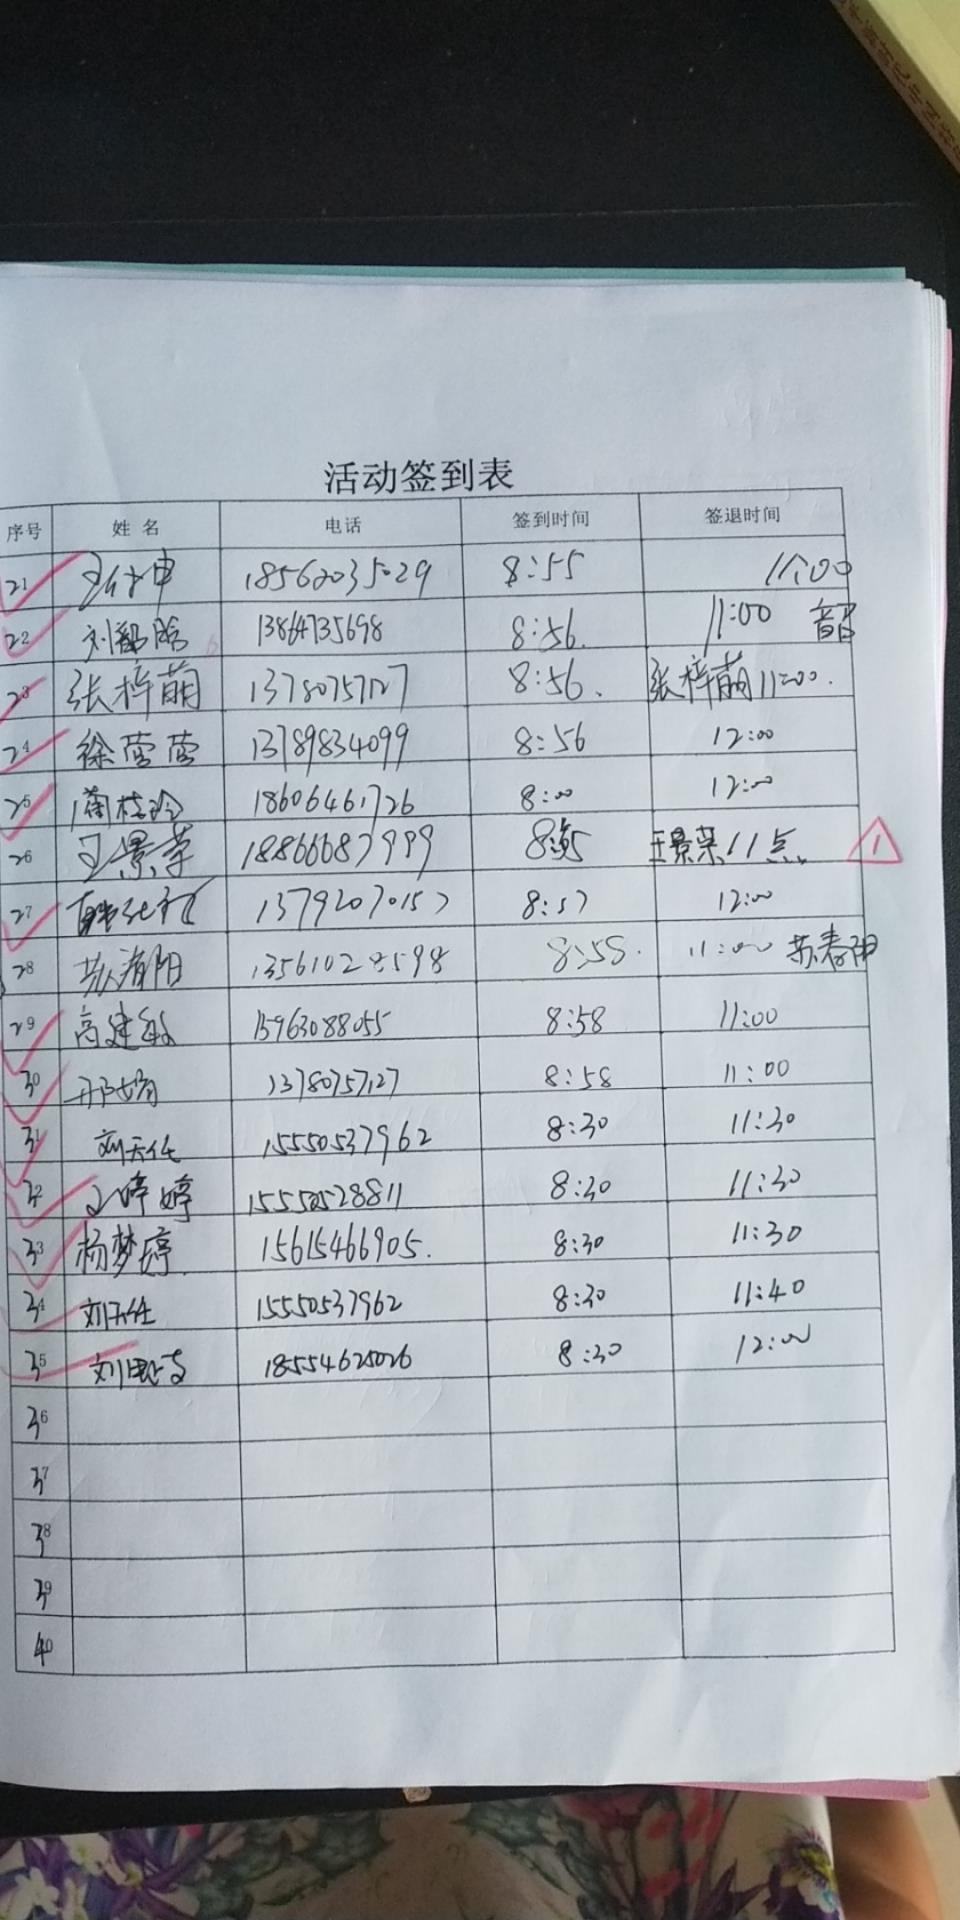 活动签到表
序号 姓名 电话 签到时间 签退时间
21 18562035029 8:55 11:00
22 刘韶晗 13864735698 8:56. 11:00 韶
23 张梓萌 13780757127 8:56. 张梓萌 11:00.
24 徐莹莹 13789834099 8:56 12:00
25 18606461726 8:00 12:00
26 王景荣 18866687999 8:55 王景荣 11点 1
27 13792070157 8:57 12:00
28 苏春阳 8:58. 11:00 苏春阳
29 高建敏 15963088055 8:58 11:00
30 邢娟 13780757127 8:58 11:00
31 刘天任 15550537962 8:30 11:30
32 王婷婷 15550528811 8:30 11:30
33 杨梦婷 15615466905. 8:30 11:30
34 刘天任 15550537962 8:30 11:40
35 18554625026 8:30 12:00
36
37
38
39
40